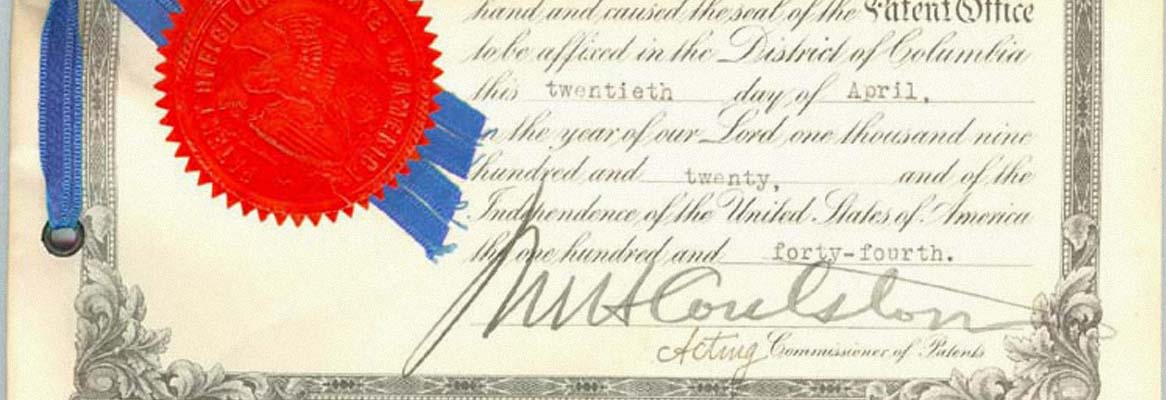 OF AMERICA
hand and caused the seal of the Patent Office
to be affixed in the District of Columbia
this twentieth day of April,
n the year of our Lord one thousand nine
hundred and twenty, and of the
Independence of the United States of America
the one hundred and forty-fourth.
Coulston
Acting Commissioner of Patents